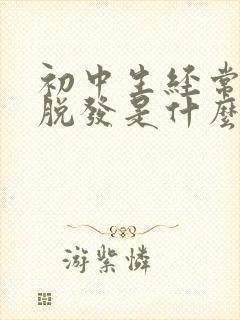 初中生经常
脱發是什麼
游紫憐